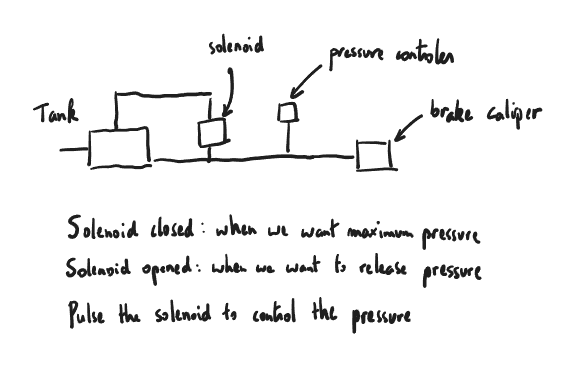 solenoid
pressure controler
Tank
brake caliper
Solenoid closed: when we want maximum pressure
Solenoid opened: when we want to release pressure
Pulse the solenoid to control the pressure